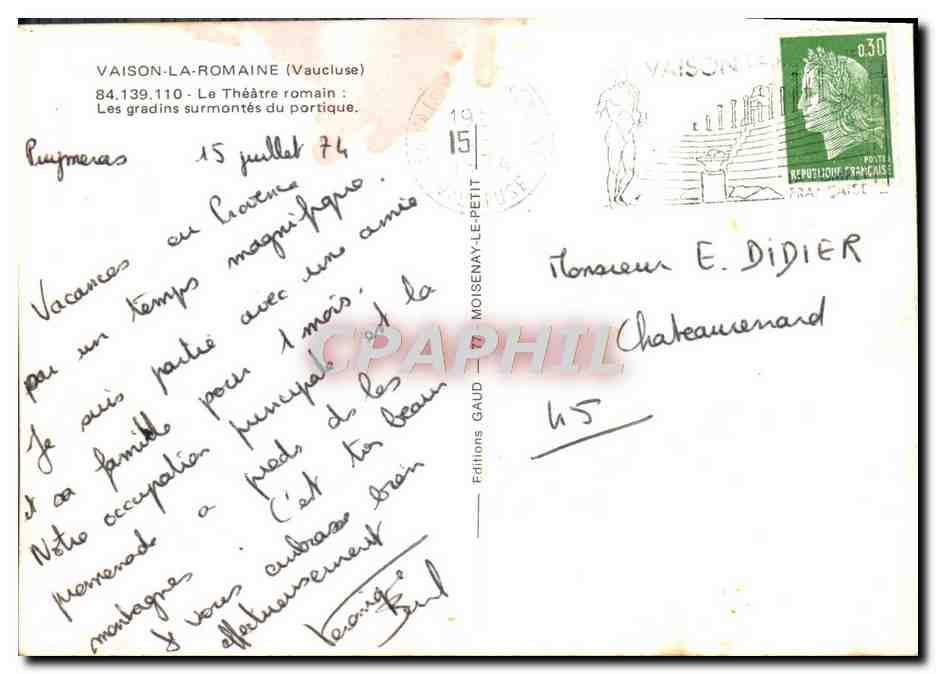 VAISON-LA-ROMAINE (Vaucluse)
84.139.110 - Le Théâtre romain :
Les gradins surmontés du portique.
Puymeras 15 juillet 74
Vacances en Provence
par un temps magnifique.
Je suis partie avec une amie
et sa famille pour 1 mois.
Notre occupation principale est la
promenade à pieds ds les
montagnes. C'est très beau
Je vous embrasse bien
affectueusement
Véronique
Editions GAUD - 77 MOISENAY-LE-PETIT
15
VAISON
FRANCAISE
0,30
POSTES
REPUBLIQUE FRANÇAISE
Monsieur E. DIDIER
Chateaurenard
45
CPAPHIL